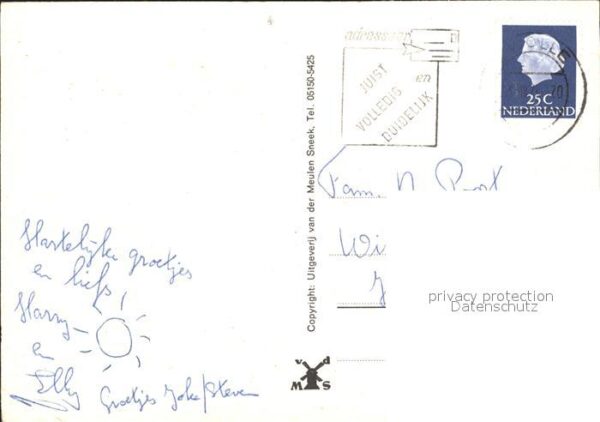 Hartelijke groetjes
en liefs
Harry
en
Elly Groetjes Joke/Steven
Copyright: Uitgeverij van der Meulen Sneek, Tel. 05150-5425
v d
M S
adresseer
JUIST
en
VOLLEDIG
DUIDELIJK
25C
NEDERLAND
Fam. N Post
Wi
privacy protection
Datenschutz